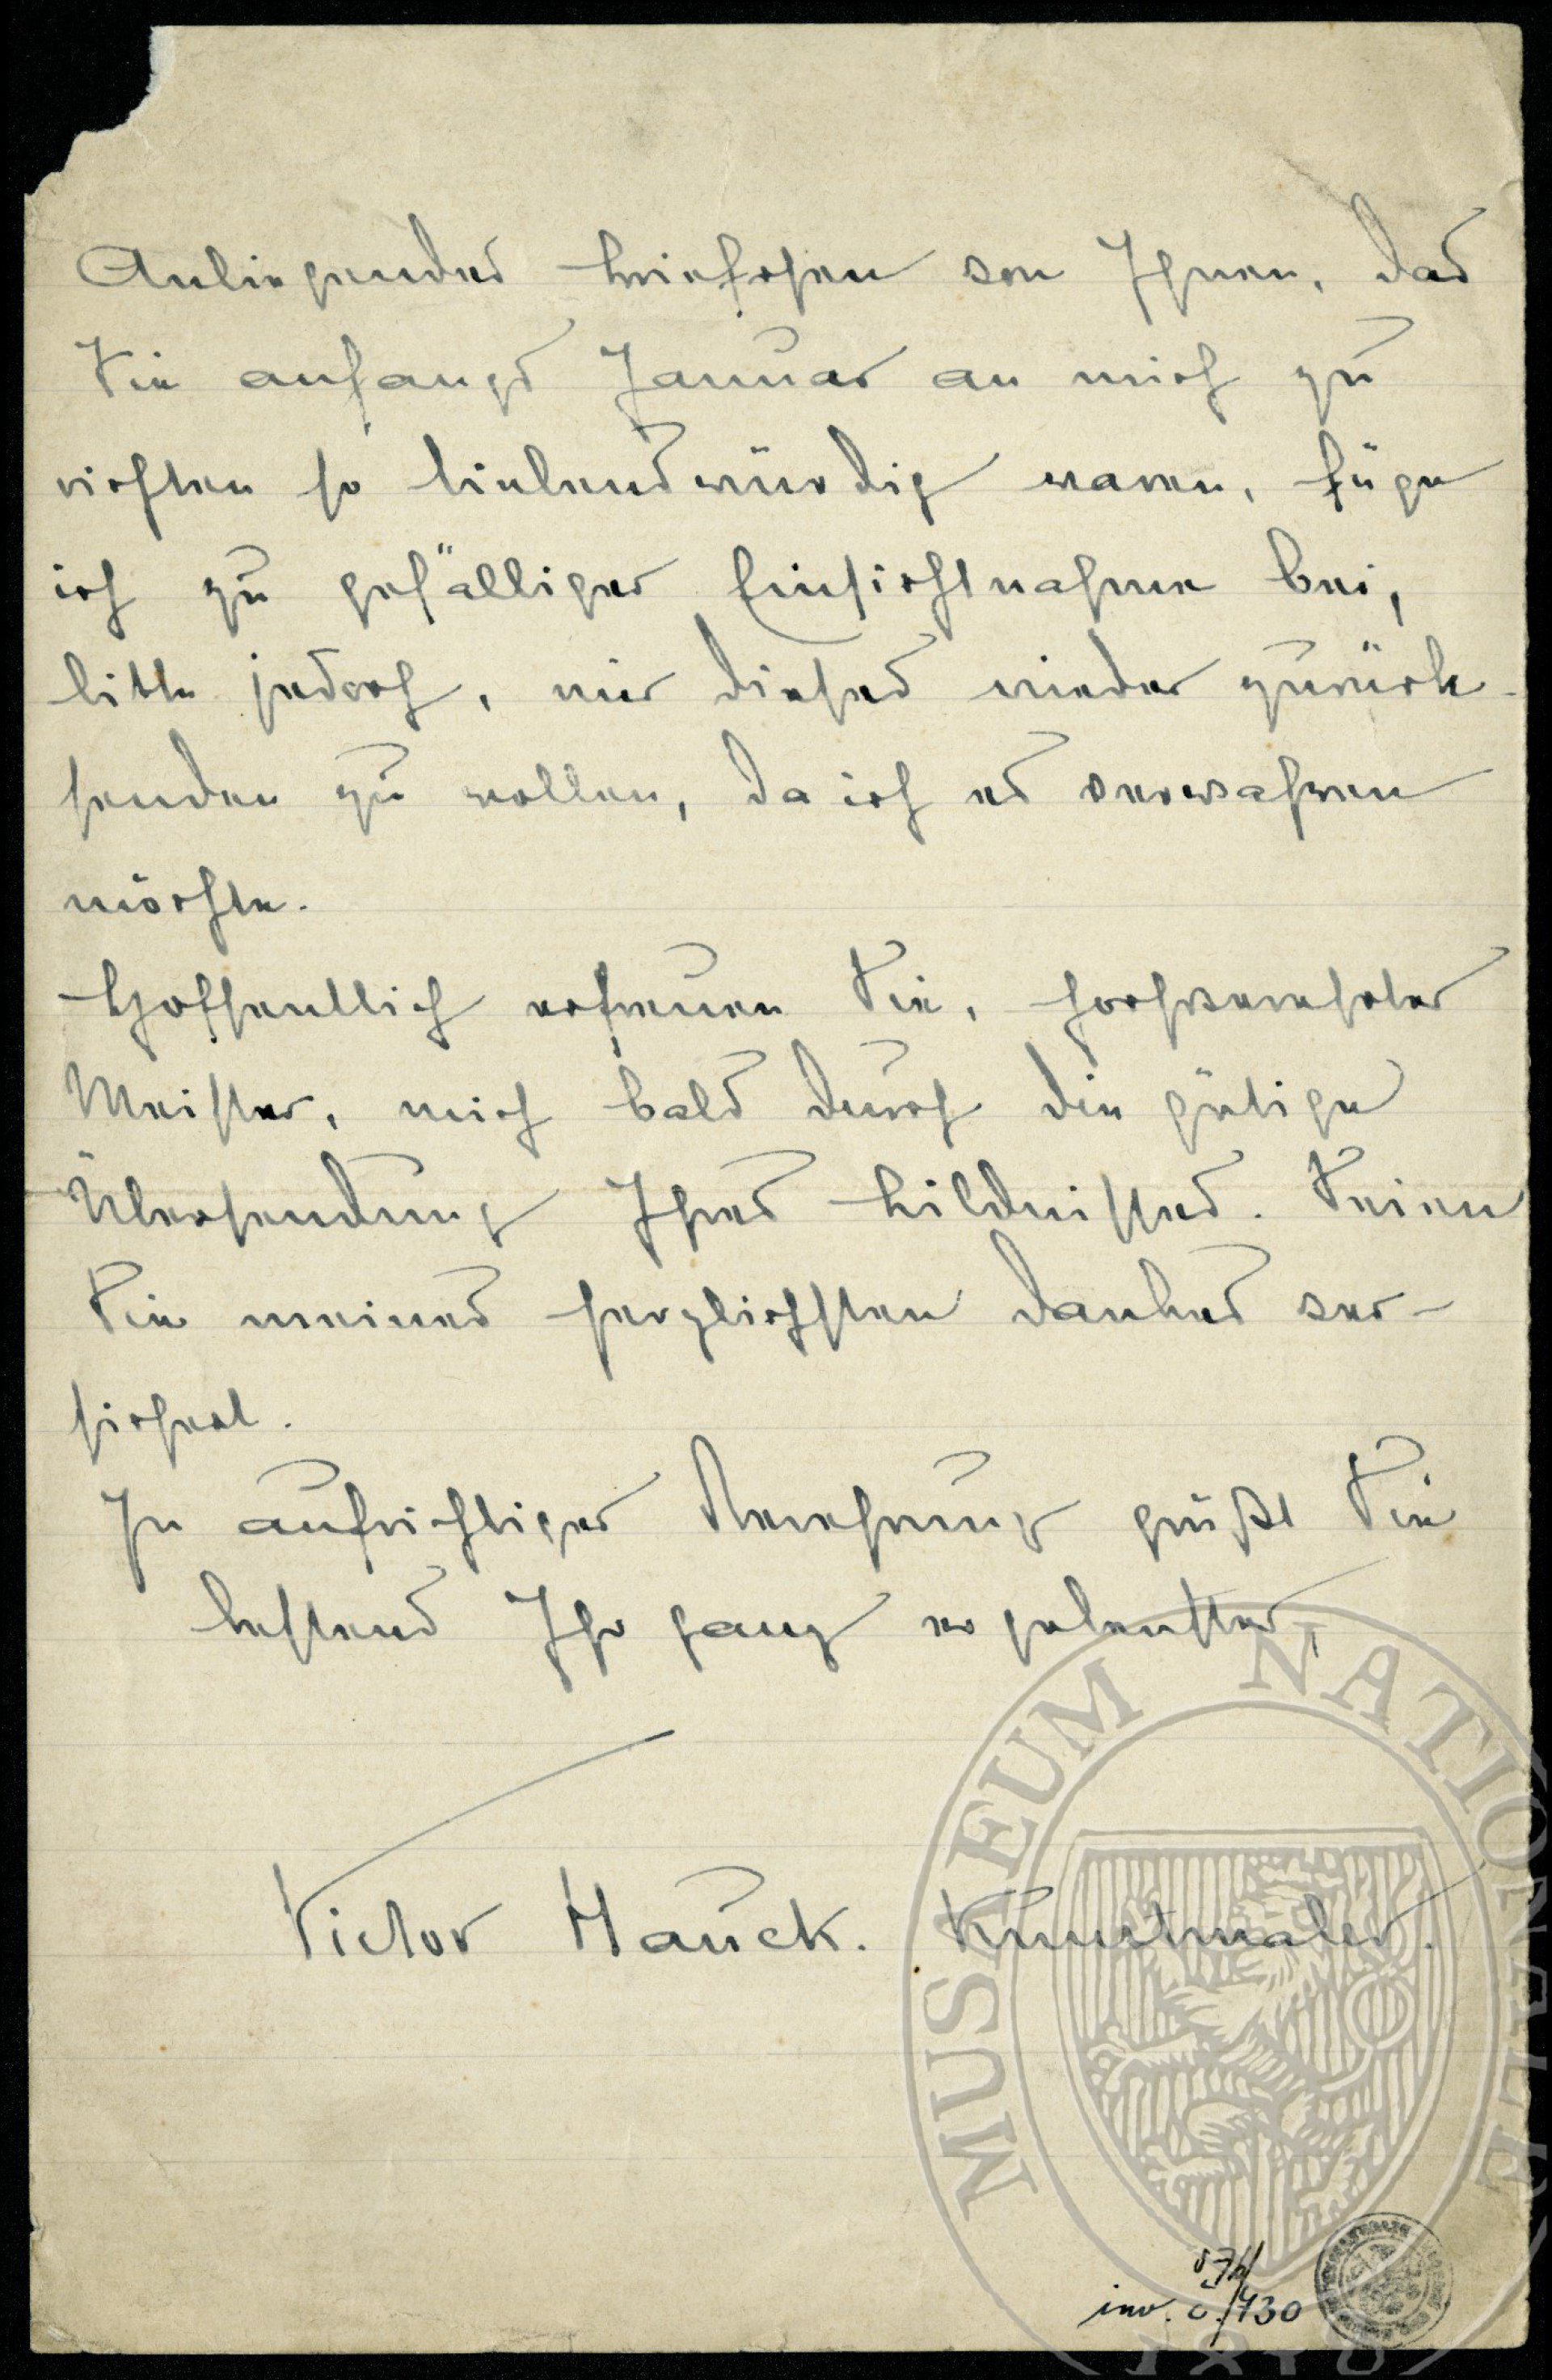 Anliegendes Briefchen von Ihnen, das
Sie anfangs Januar an mich zu
richten so liebenswürdig waren, füge
ich zu gefälliger Einsichtnahme bei,
bitte jedoch, mir dieses wieder zurück-
senden zu wollen, da ich es verwahren
möchte.
Hoffentlich erfreuen Sie, hochverehrter
Meister, mich bald durch die gütige
Übersendung Ihres Bildnisses. Seien
Sie meines herzlichsten Dankes ver-
sichert.
In aufrichtiger Verehrung grüßt Sie
bestens Ihr ganz ergebenster,
Victor Hauck. Kunstmaler.
inv. č. 730
MUSAEUM NATIONALE
1818